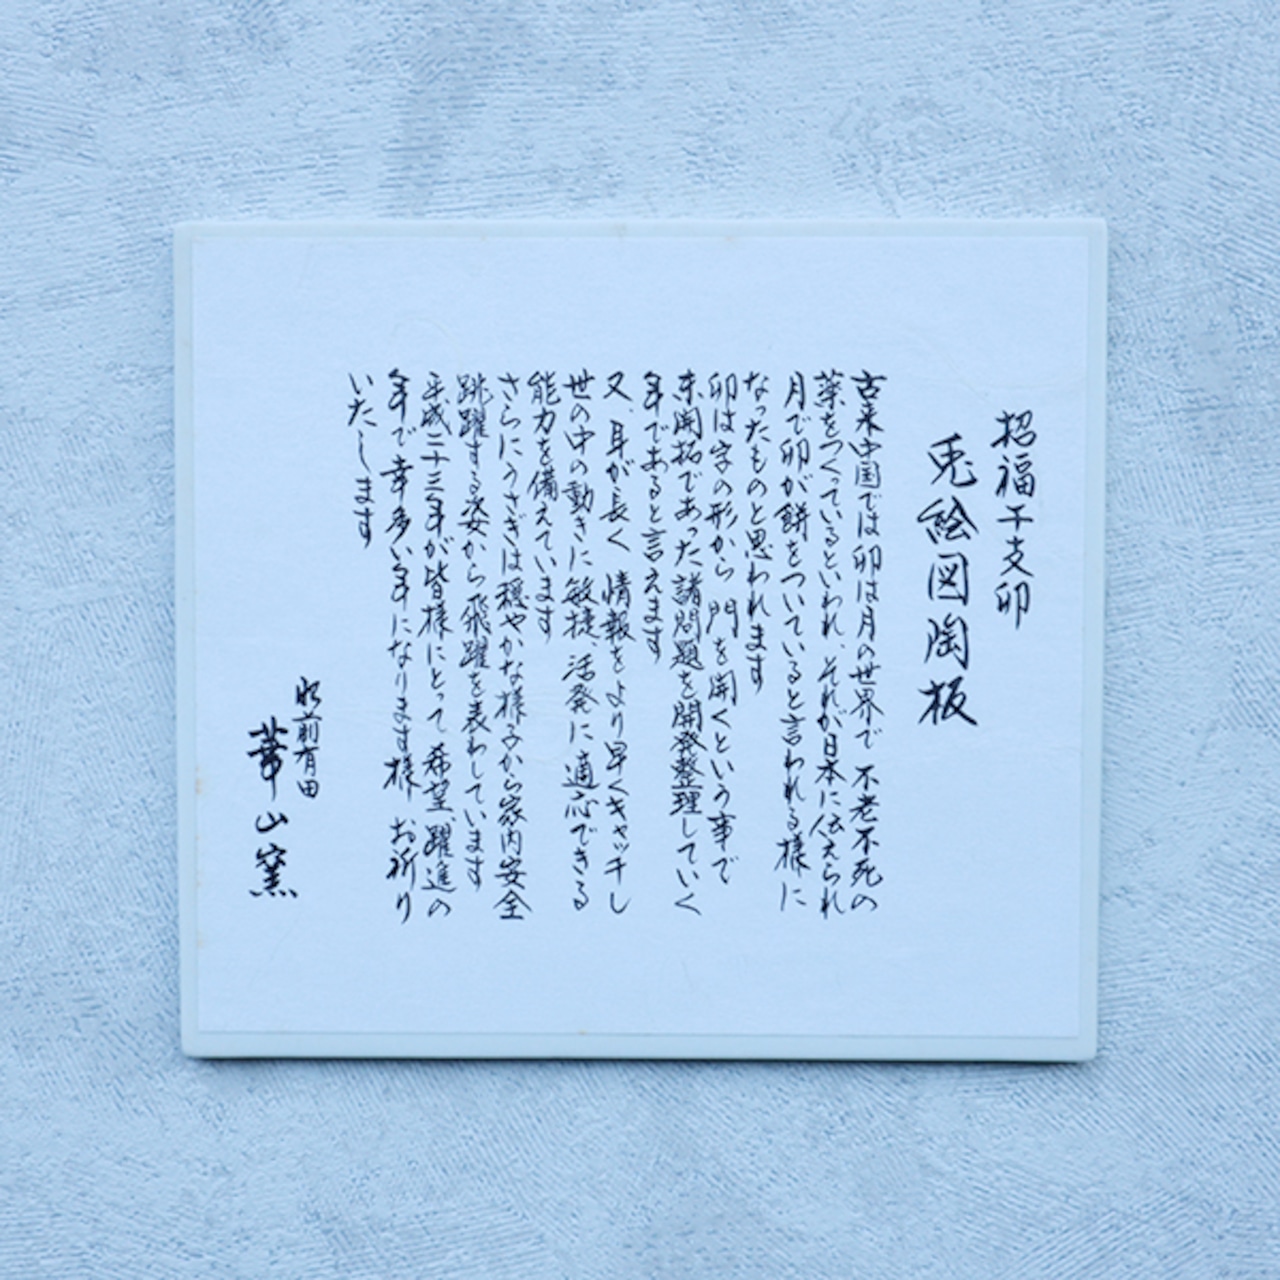 招福干支卯
兎絵図陶板
古来中国では卯は月の世界で不老不死の
薬をつくっているといわれ、それが日本に伝えられ
月で卯が餅をついていると言われる様に
なったものと思われます
卯は字の形から門を開くという事で
未開拓であった諸問題を開発整理していく
年であると言えます
又、耳が長く情報をより早くキャッチし
世の中の動きに敏捷、活発に適応できる
能力を備えています
さらにうさぎは穏やかな様子から家内安全
跳躍する姿から飛躍を表わしています
平成二十三年が皆様にとって希望、躍進の
年で幸多い年になります様お祈り
いたします
肥前有田
華山窯